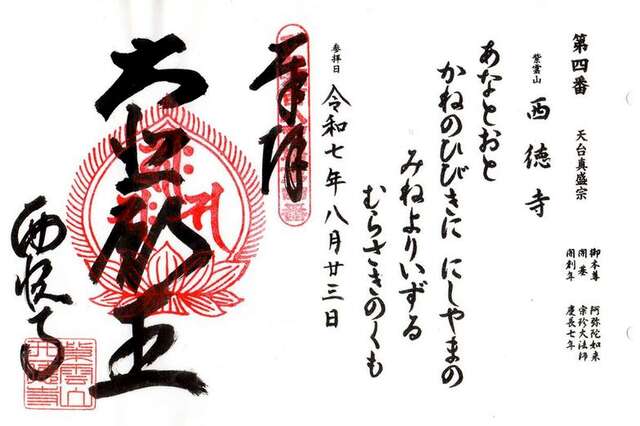 第四番 天台真盛宗
御本尊 阿弥陀如来
開基 宗珍大法師
開創年 慶長七年
紫雲山 西徳寺
あなとおと
かねのひびきに にしやまの
みねよりいずる
むらさきのくも
参拝日 令和七年八月廿三日
奉拝
大悲願王
西徳寺
紫雲山
西徳寺